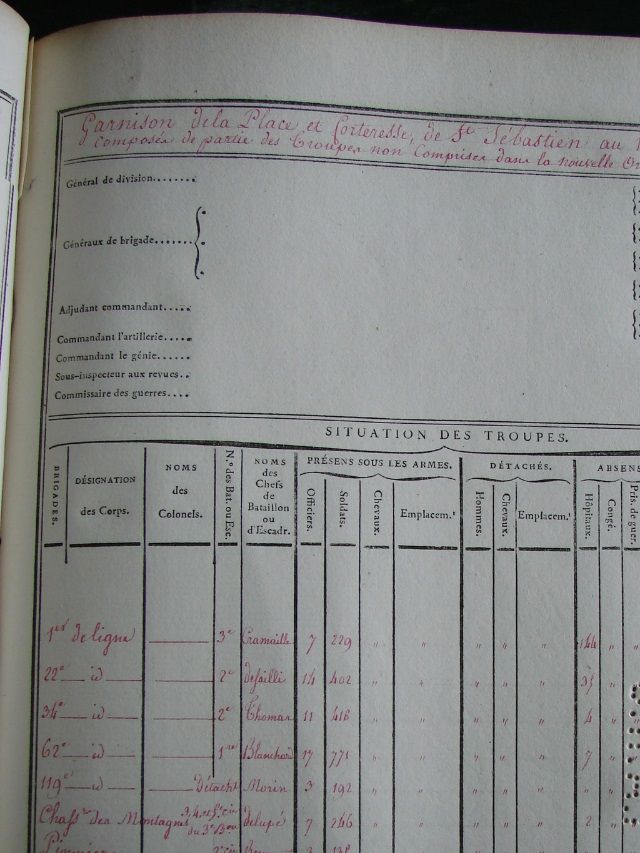 Garnison de la Place et Forteresse, de St Sébastien au
Composée de partie des Troupes non Comprises dans la nouvelle Or
Général de division.......
Généraux de brigade.......
Adjudant commandant.....
Commandant l'artillerie.....
Commandant le génie......
Sous-inspecteur aux revues..
Commissaire des guerres....
SITUATION DES TROUPES.
BRIGADES.
DÉSIGNATION des Corps.
NOMS des Colonels.
N.os des Bat. ou Esc.
NOMS des Chefs de Bataillon ou d'Escadr.
PRÉSENS SOUS LES ARMES.
Officiers. Soldats. Chevaux. Emplacem.t
DÉTACHÉS.
Hommes. Chevaux. Emplacem.t
ABSENS
Hôpitaux. Congé. Pris. de guer.
1er de ligne 3e Cramaille 7 229 " " " " " 144 "
22e id 2e desailli 14 402 " " " " " 35 "
34e id 2e Thomas 11 418 " " " " " 4 "
62e id 1re Blanchard 17 771 " " " " " 7 "
119e id Détacht Morin 3 192 " " " " " " "
Chassrs des Montagnes delupé 7 246 " " " " " 2 "